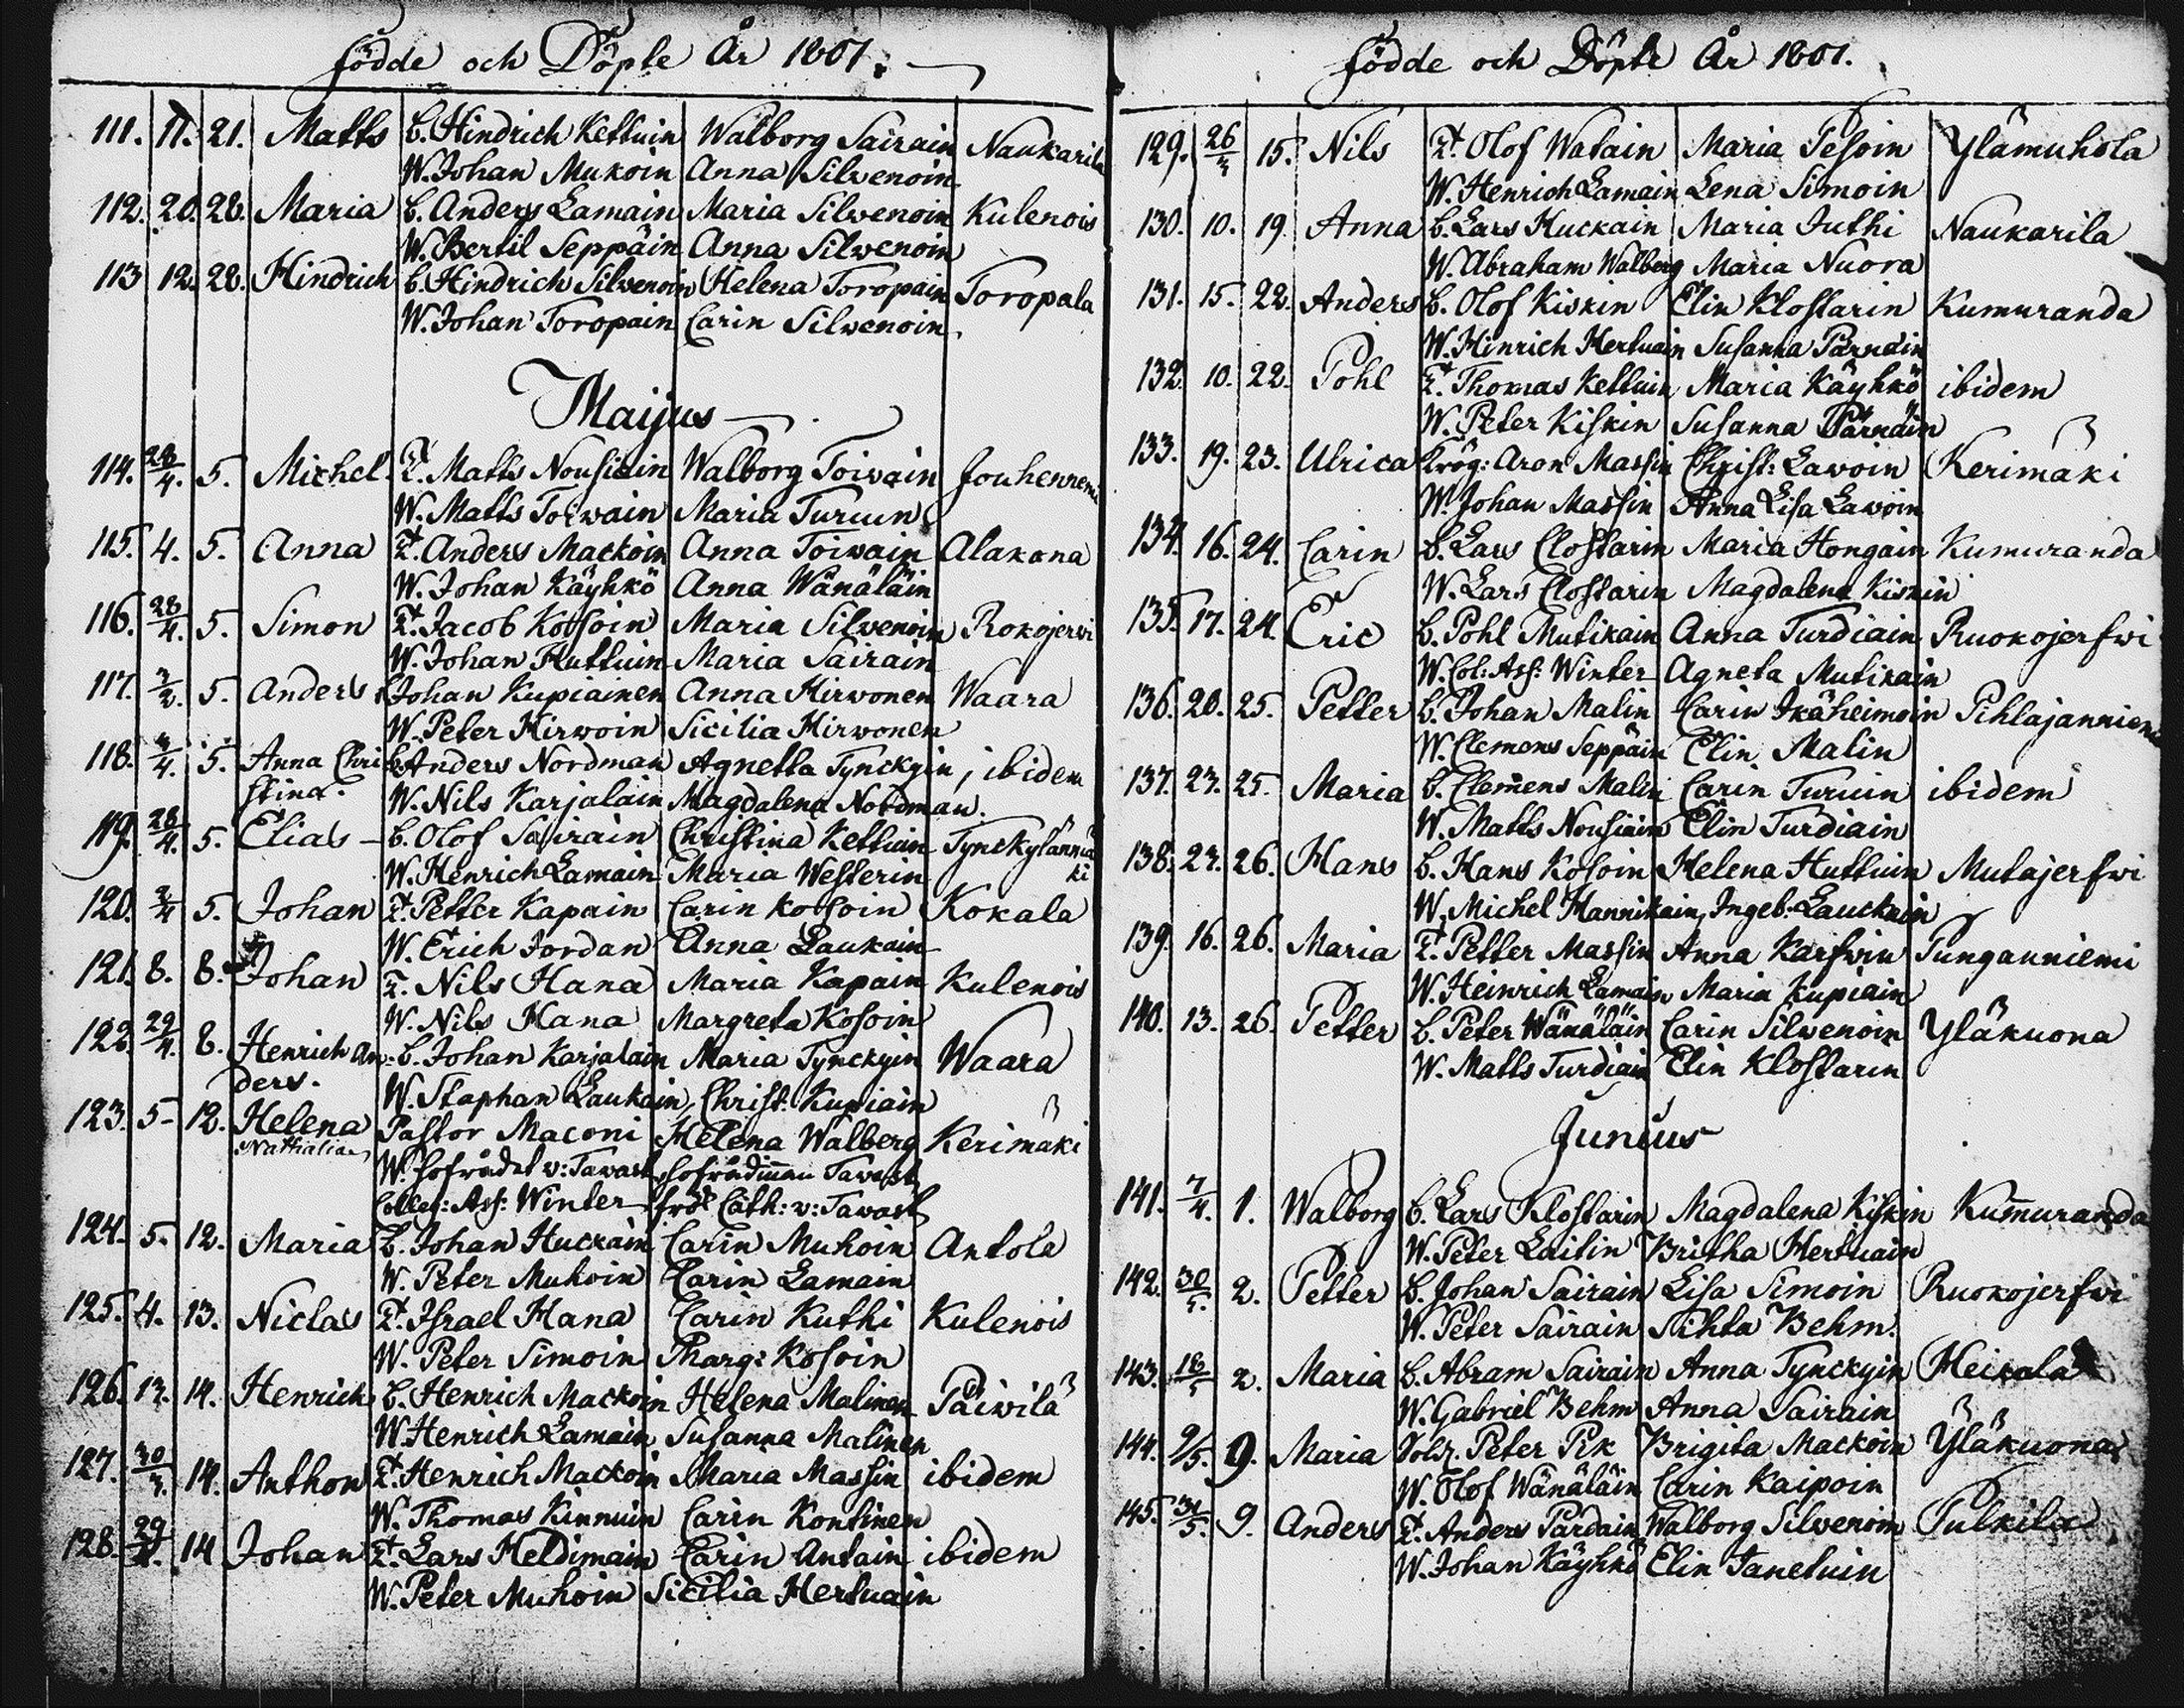 födde och Döpte År 1801.
111. 11. 21. Matts B. Hindrich Kettuin Walborg Sairain Naukarila
W. Johan Mukoin Anna Silvenoin
112. 20. 28. Maria B. Anders Lamain Maria Silvenoin Kulenois
W. Bertil Seppäin Anna Silwenoin
113 12. 28. Hindrich B. Hindrich Silvenoin Helena Toropain Toropala
W. Johan Toropain Carin Silwenoin
Maijus
114. 28/4. 5. Michel T. Matts Nousiain Walborg Toiwain Jouhenniemi
W. Matts Toiwain Maria Turuin
115. 4. 5. Anna T. Anders Mackoin Anna Toiwain Alakona
W. Johan Käyhkö Anna Wänäläin
116. 28/4. 5. Simon T. Jacob Kossoin Maria Silvenoin Rokojerwi
W. Johan Huttuin Maria Sairain
117. 5. Anders Johan Kupiainen Anna Hirwonen Waara
W. Peter Hirwoin Sicilia Hirwonen
118. 5. Anna Chri B. Anders Nordman Agnetta Tynckyin, ibidem
stina. W. Nils Karjalain Magdalena Nordman.
119. 28/4. 5. Elias B. Olof Sairain Christina Kettuin Tynckylänmä
W. Henrich Lamain Maria Westerin ki
120. 2/4 5. Johan T. Petter Kapain Carin Kossoin Kokala
W. Erich Jordan Anna Laukain
121. 8. 8. Johan T. Nils Hana Maria Kapain Kulenois
W. Nils Hana Margreta Kosoin
122. 29/4. 8. Henrich An- B. Johan Karjalain Maria Tynckyin Waara
ders. W. Staphan Laukain, Christ: Kupiain
123. 5 12. Helena Pastor Maconi Helena Walberg Kerimäki
Nathalia W. Hofrådet v: Tawast, Hofrådinnan Tawast
Colleg: Ass: Winter frök Cath: v: Tawast
124. 5. 12. Maria B. Johan Huckain Carin Muhoin Antola
W. Peter Muhoin Carin Lamain
125. 4. 13. Niclas T. Israel Hana Carin Kuthi Kulenois
W. Peter Simoin Marg: Kosoin
126. 13. 14. Henrich B. Henrich Mackoin Helena Malinen Päiwilä
W. Henrich Lamain Susanna Malinen
127. 30/3. 14. Anthon T. Henrich Mackoin Maria Massin ibidem
W. Thomas Kinnuin Carin Kontinen
128. 29/4. 14 Johan T. Lars Heldimain Carin Antain ibidem
W. Peter Muhoin Sicilia Hertuain
födde och Döpte År 1801.
129. 15. Nils T. Olof Watain Maria Pesoin Ylämuhola
W. Henrich Lamain Lena Simoin
130. 10. 19. Anna B. Lars Huckain Maria Juthi Naukarila
W. Abraham Walberg Maria Nuora
131. 15. 22. Anders B. Olof Kiskin Elin Klostarin Kumuranda
W. Hinrich Hertuain Susanna Pärnäin
132. 10. 22. Pohl T. Thomas Kettuin Maria Käyhkö ibidem
W. Peter Kiskin Susanna Pärnäin
133. 19. 23. Ulrica Krög: Aron Massin Christ: Lawoin Kerimäki
W. Johan Massin Anna Lisa Lawoin
134. 16. 24. Carin B. Lars Clostarin Maria Hongain Kumuranda
W. Lars Clostarin Magdalena Kiskin
135. 17. 24. Eric B. Pohl Mutikain Anna Turdiain Ruokojerfwi
W. Col: Ass: Winter Agneta Mutikain
136. 20. 25. Petter B. Johan Malin Carin Ikäheimoin Pihlajanniemi
W. Clemens Seppäin Elin Malin
137. 23. 25. Maria B. Clemens Malin Carin Turuin ibidem
W. Matts Nousiain Elin Turdiain
138. 23. 26. Hans B. Hans Kosoin Helena Huttuin Mutajerfwi
W. Michel Mannikain, Ingeb: Lauckain
139. 16. 26. Maria T. Petter Massin Anna Karfwin Punganniemi
W. Heinrich Lamain Maria Kupiain
140. 13. 26. Petter B. Peter Wänäläin Carin Silwenoin Yläkuona
W. Matts Turdiain Elin Klostarin
Junius
141. 7/4. 1. Walborg B. Lars Klostarin Magdalena Kiskin Kummuranda
W. Peter Laitin Britha Hertuain
142. 30/5. 2. Petter B. Johan Sairain Lisa Simoin Ruokojerfwi
W. Peter Sairain Sihta Behm.
143. 18/5 2. Maria B. Abram Sairain Anna Tynckyin Heikala
W. Gabriel Behm Anna Sairain
144. 9/5. 9. Maria Peter Pik Brigita Mackoin Yläkuona
W. Olof Wänäläin Carin Kaipoin
145. 31/5. 9. Anders T. Anders Pardain Walborg Silvenoin Pulkila
W. Johan Käyhkö Elin Tanetuin